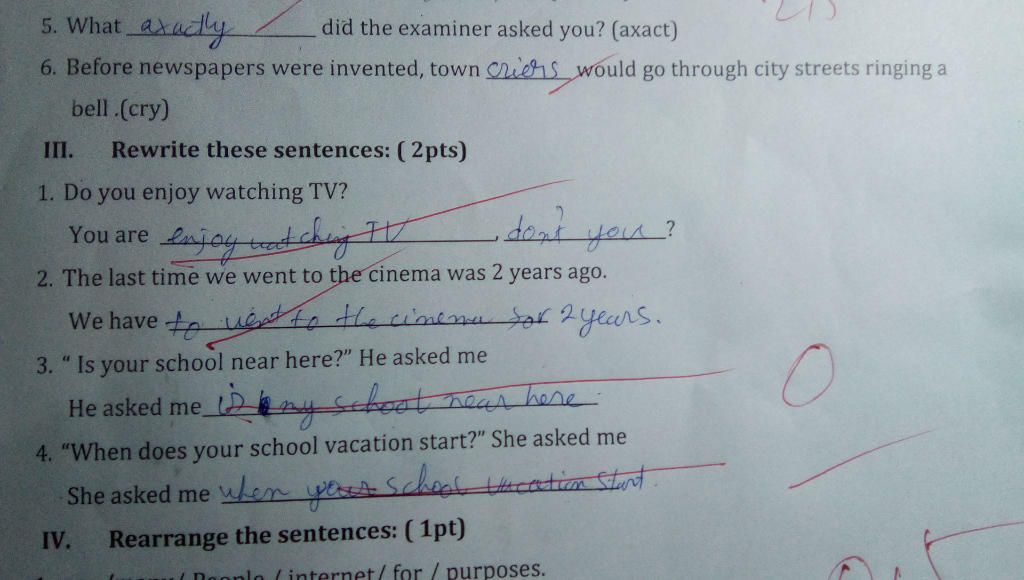 5. What axactly did the examiner asked you? (axact)
6. Before newspapers were invented, town criers would go through city streets ringing a
bell .(cry)
III. Rewrite these sentences: ( 2pts)
1. Do you enjoy watching TV?
You are enjoy watching TV , don't you ?
2. The last time we went to the cinema was 2 years ago.
We have to went to the cinema for 2 years.
3. “ Is your school near here?” He asked me
He asked me is my school near here
4. “When does your school vacation start?” She asked me
She asked me when your school vacation start.
IV. Rearrange the sentences: ( 1pt)
/ People / internet/ for / purposes.
0